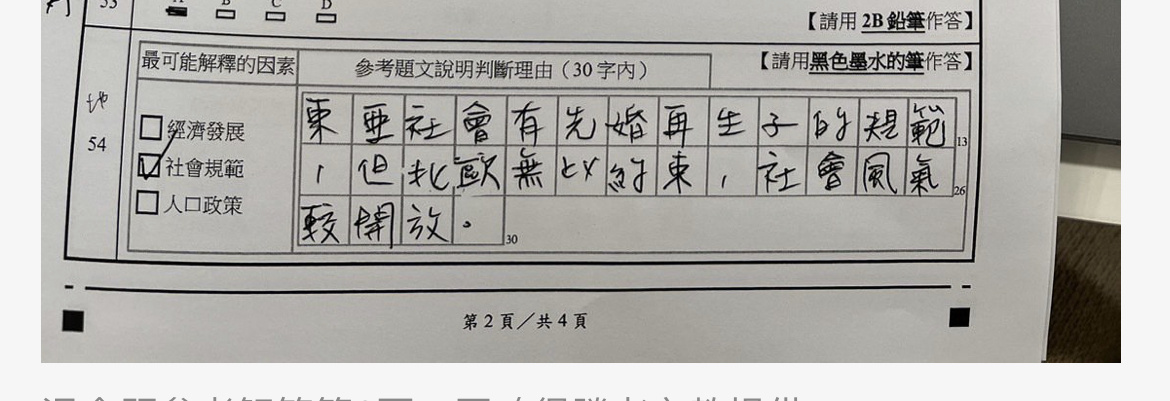 53
A B C D
【請用2B鉛筆作答】
最可能解釋的因素
參考題文說明判斷理由（30字內）
【請用黑色墨水的筆作答】
地
54
經濟發展
社會規範
人口政策
東亞社會有先婚再生子的規範
13
，但北歐無此約束，社會風氣
26
較開放。
30
第2頁／共4頁